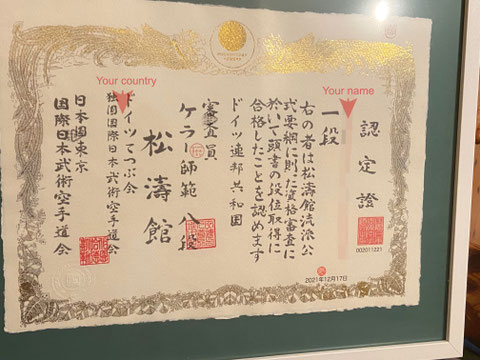 認定證
002011223
Your name
一段
右の者は松濤館流派公
式要綱に則った資格審査に
於いて頭書の段位取得に
合格したことを認めます
ドイツ連邦共和国
審査員
ケラー師範 八段
松濤館
Your country
ドイツてつぶ会
独国国際日本武術空手道会
日本国東京
国際日本武術空手道会
2021年12月17日